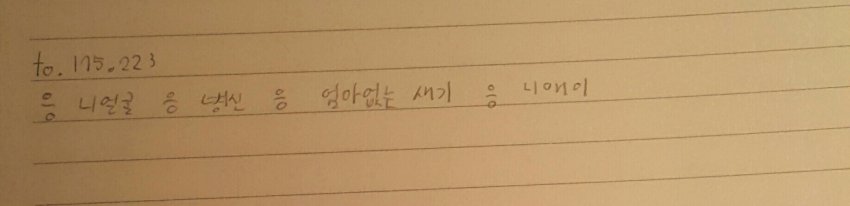 to. 175.223
응 니얼굴 응 병신 응 엄마없는 새기 응 니애미